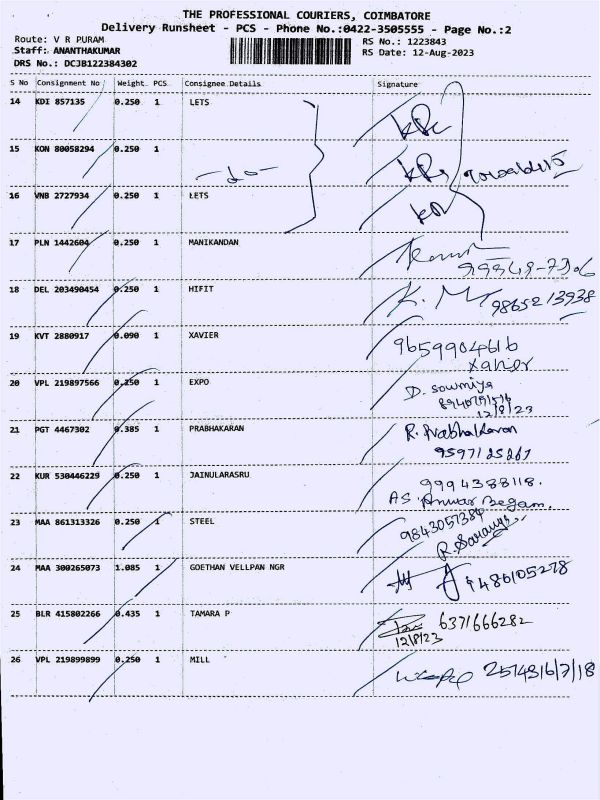 THE PROFESSIONAL COURIERS, COIMBATORE
Delivery Runsheet - PCS - Phone No.:0422-3505555 - Page No.:2
Route: V R PURAM RS No.: 1223843
Staff: ANANTHAKUMAR RS Date: 12-Aug-2023
DRS No.: DCJB122384302
S No Consignment No Weight PCS Consignee Details Signature
14 KDI 857135 0.250 1 LETS
15 KON 80058294 0.250 1
-do-
16 VNB 2727934 0.250 1 LETS
17 PLN 1442604 0.250 1 MANIKANDAN
18 DEL 203490454 0.250 1 HIFIT K. M 9865213938
19 KVT 2880917 0.090 1 XAVIER 9659904616
Xavier
20 VPL 219897566 0.250 1 EXPO D. Sowmiya
12/8/23
21 PGT 4467302 0.385 1 PRABHAKARAN R. Prabhakaran
9597125267
22 KUR 530446229 0.250 1 JAINULARASRU 9994388118.
AS. Anwar Begam.
23 MAA 861313326 0.250 1 STEEL 9843057384
R. Saranya
24 MAA 300265073 1.085 1 GOETHAN VELLPAN NGR 9486105278
25 BLR 415802266 0.435 1 TAMARA P 6371666282
12/8/23
26 VPL 219899899 0.250 1 MILL